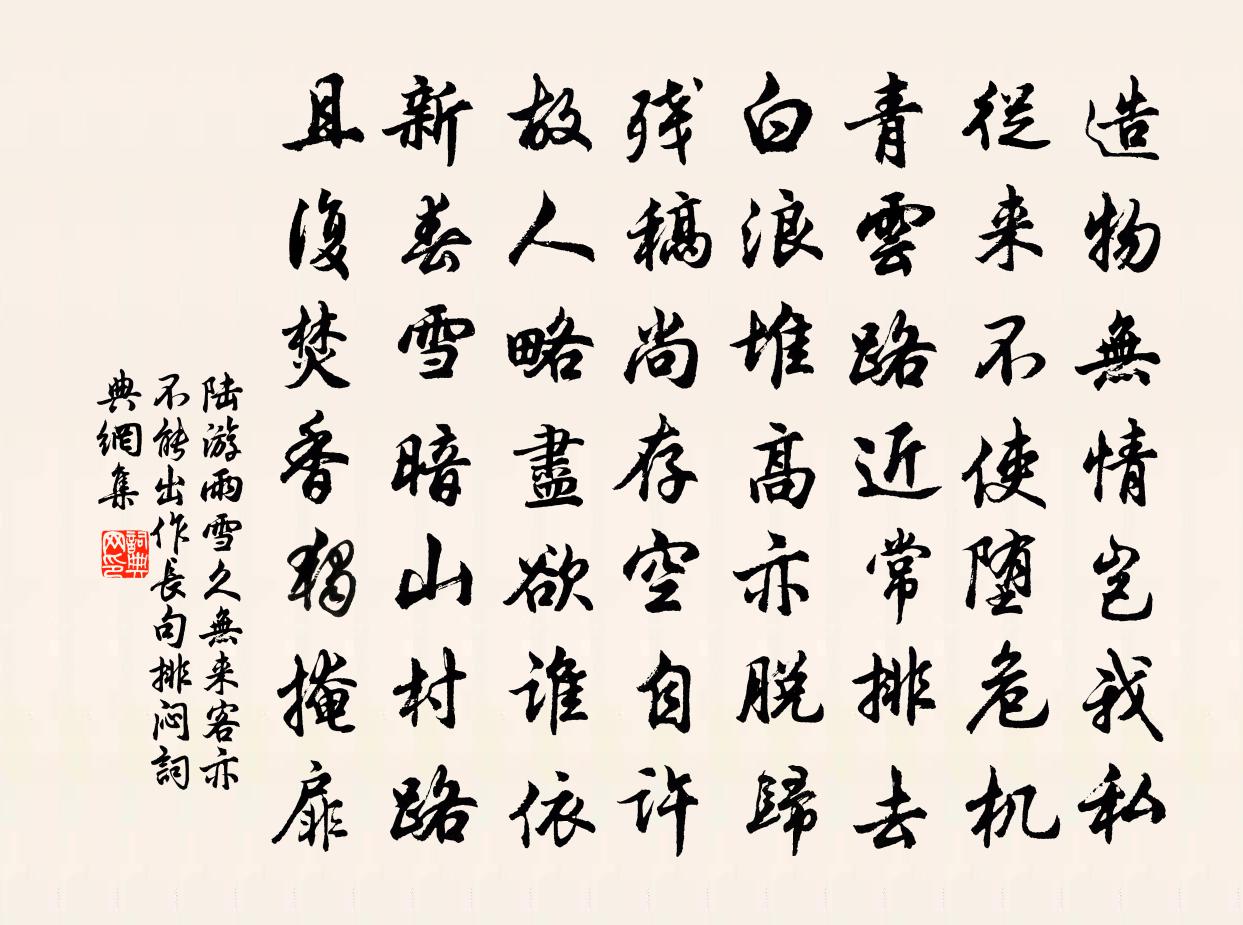 造物無情豈我私
從来不使堕危机
青雲路近常排去
白浪堆高亦脱歸
残稿尚存空自許
故人略盡欲誰依
新春雪暗山村路
且復焚香獨掩扉
陆游雨雪久無来客亦
不能出作長句排闷詞
典網集
詞典
网印